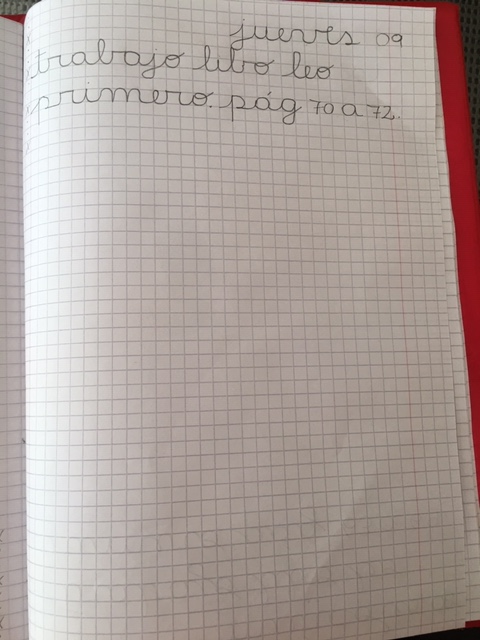 jueves 09
trabajo libo leo
primero. pág 70 a 72.